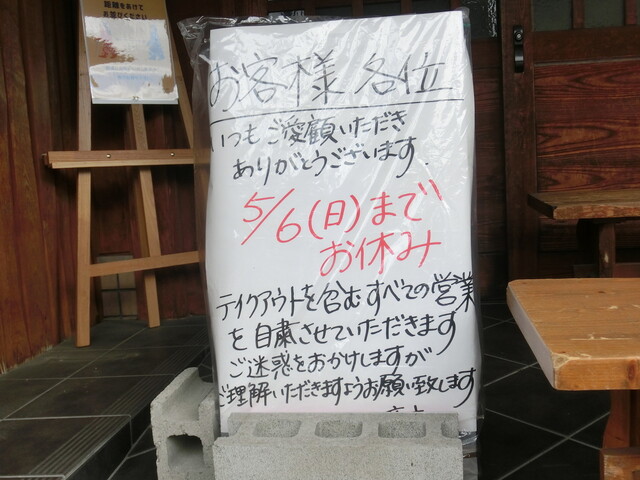 距離をあけて
お並びください
お客様各位
いつもご愛顧いただき
ありがとうございます.
5/6(日)まで
お休み
テイクアウトを含むすべての営業
を自粛させていただきます
ご迷惑をおかけしますが
ご理解いただきますようお願い致します